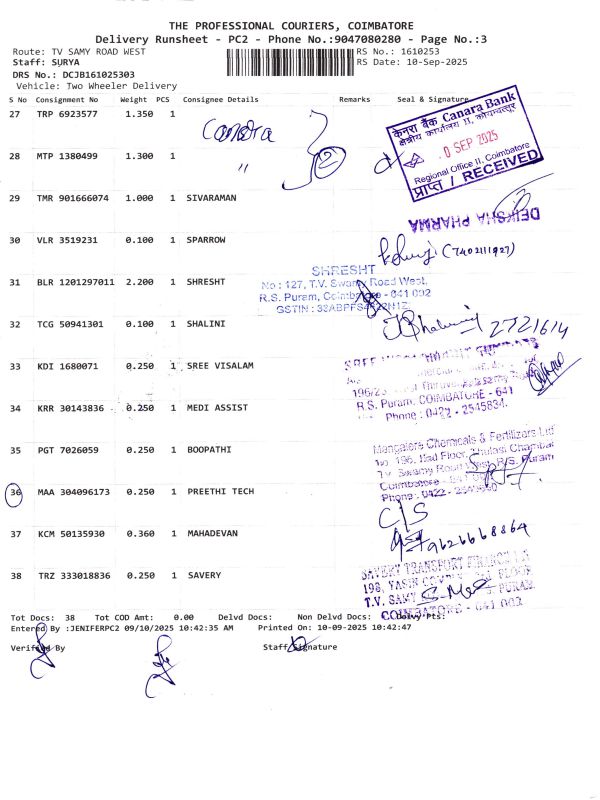 THE PROFESSIONAL COURIERS, COIMBATORE
Delivery Runsheet - PC2 - Phone No.:9047080280 - Page No.:3
Route: TV SAMY ROAD WEST
RS No.: 1610253
Staff: SURYA
RS Date: 10-Sep-2025
DRS No.: DCJB161025303
Vehicle: Two Wheeler Delivery
S No Consignment No Weight PCS Consignee Details Remarks Seal & Signature
27 TRP 6923577 1.350 1 Canara
28 MTP 1380499 1.300 1 " 2
केनरा बैंक Canara Bank
क्षेत्रीय कार्यालय II, कोयम्बत्तूर
0 SEP 2025
Regional Office II, Coimbatore
प्राप्त / RECEIVED
29 TMR 901666074 1.000 1 SIVARAMAN
DEIKSHA PHARMA
30 VLR 3519231 0.100 1 SPARROW
(7402111927)
31 BLR 1201297011 2.200 1 SHRESHT
SHRESHT
No : 127, T.V. Swamy Road West,
R.S. Puram, Coimbatore - 641 002
GSTIN :
32 TCG 50941301 0.100 1 SHALINI
Shalini 2721614
33 KDI 1680071 0.250 1 SREE VISALAM
SREE
R.S. Puram, COIMBATORE - 641
Phone : 0422 - 2545834
34 KRR 30143836 0.250 1 MEDI ASSIST
35 PGT 7026059 0.250 1 BOOPATHI
Mangalore Chemicals & Fertilizers Ltd
No. 196, IInd Floor, Thulasi Chambar
T.V. Swamy Road West, R.S. Puram
Coimbatore
Phone : 0422 -
36 MAA 304096173 0.250 1 PREETHI TECH
C/S
37 KCM 50135930 0.360 1 MAHADEVAN
9626668864
38 TRZ 333018836 0.250 1 SAVERY
SAVERY TRANSPORT FINANCE
198, YASIN FLOOR
T.V. PURAM
COIMBATORE - 641 002
Tot Docs: 38 Tot COD Amt: 0.00 Delvd Docs: Non Delvd Docs: Delvy Pts:
Entered By :JENIFERPC2 09/10/2025 10:42:35 AM Printed On: 10-09-2025 10:42:47
Verified By Staff Signature